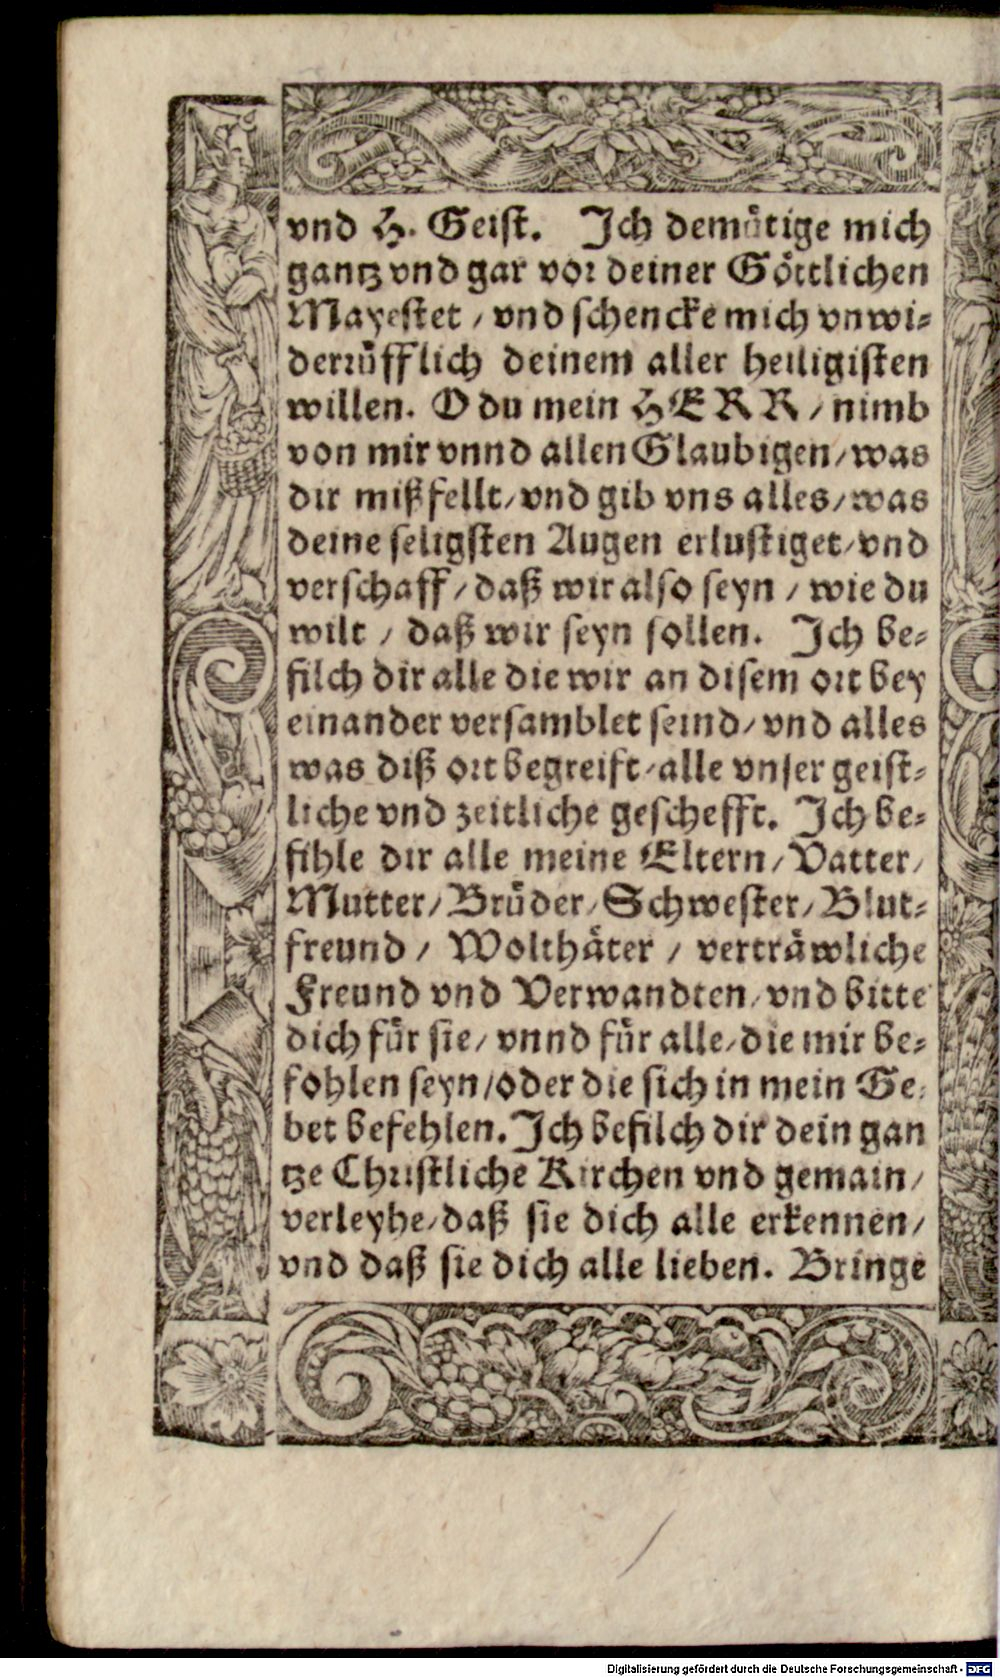 vnd H. Geist. Ich demuͤtige mich
gantz vnd gar vor deiner Goͤttlichen
Mayestet / vnd schencke mich vnwi=
derruͤfflich deinem aller heiligisten
willen. O du mein HERR / nimb
von mir vnnd allen Glaubigen / was
dir mißfellt / vnd gib vns alles / was
deine seligsten Augen erlustiget / vnd
verschaff / daß wir also seyn / wie du
wilt / daß wir seyn sollen. Ich be=
filch dir alle die wir an disem ort bey
einander versamblet seind / vnd alles
was diß ort begreift / alle vnser geist=
liche vnd zeitliche geschefft. Ich be=
fihle dir alle meine Eltern / Vatter /
Mutter / Bruͤder / Schwester / Blut=
freund / Wolthaͤter / vertraͤwliche
Freund vnd Verwandten / vnd bitte
dich fuͤr sie / vnnd fuͤr alle / die mir be=
fohlen seyn / oder die sich in mein Ge=
bet befehlen. Ich befilch dir dein gan
tze Christliche Kirchen vnd gemain /
verleyhe / daß sie dich alle erkennen /
vnd daß sie dich alle lieben. Bringe
Digitalisierung gefördert durch die Deutsche Forschungsgemeinschaft - DFG